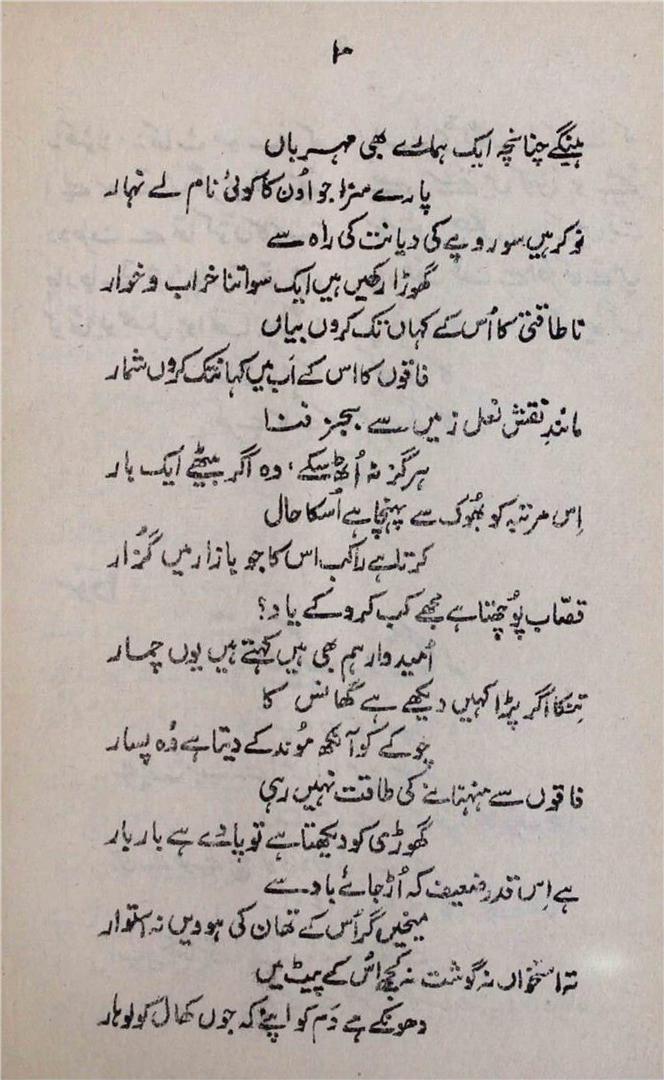 ۱۰
ہینگے چنانچہ ایک ہمارے بھی مہرباں
پارے سزا جو اُون کا کوئی نام لے نہار
نوکر ہیں سو روپے کی دیانت کی راہ سے
گھوڑا رکھیں ہیں ایک سو اتنا خراب و خوار
ناطاقتی کا اُس کے کہاں تک کروں بیاں
فاقوں کا اس کے اَب میں کہانتک کروں شمار
مانندِ نقش نعل زمیں سے بجز فنا
ہرگز نہ اُٹھ سکے، وہ اگر بیٹھے ایک بار
اِس مرتبہ کو بھُوک سے پہنچا ہے اُسکا حال
کرتا ہے راکب اس کا جو بازار میں گزُار
قصّاب پوُچھتا ہے مجھے کب کرو گے یاد؟
اُمیدوار ہم بھی ہیں کہتے ہیں یوں چمار
تِنکا اگر پڑا کہیں دیکھے ہے گھانس کا
چوکے کو آنکھ موُند کے دیتا ہے وُہ پسار
فاقوں سے ہنہنانے کی طاقت نہیں رہی
گھوڑی کو دیکھتا ہے تو پادے ہے بار بار
ہے اِس قدر ضعیف کہ اُڑ جائے باد سے
میخیں گر اُس کے تھان کی ہوویں نہ استوار
نہ استخواں نہ گوشت نہ کچھ اُس کے پیٹ میں
دھونکے ہے دَم کو اپنے کہ جوں کھال کو لوہار